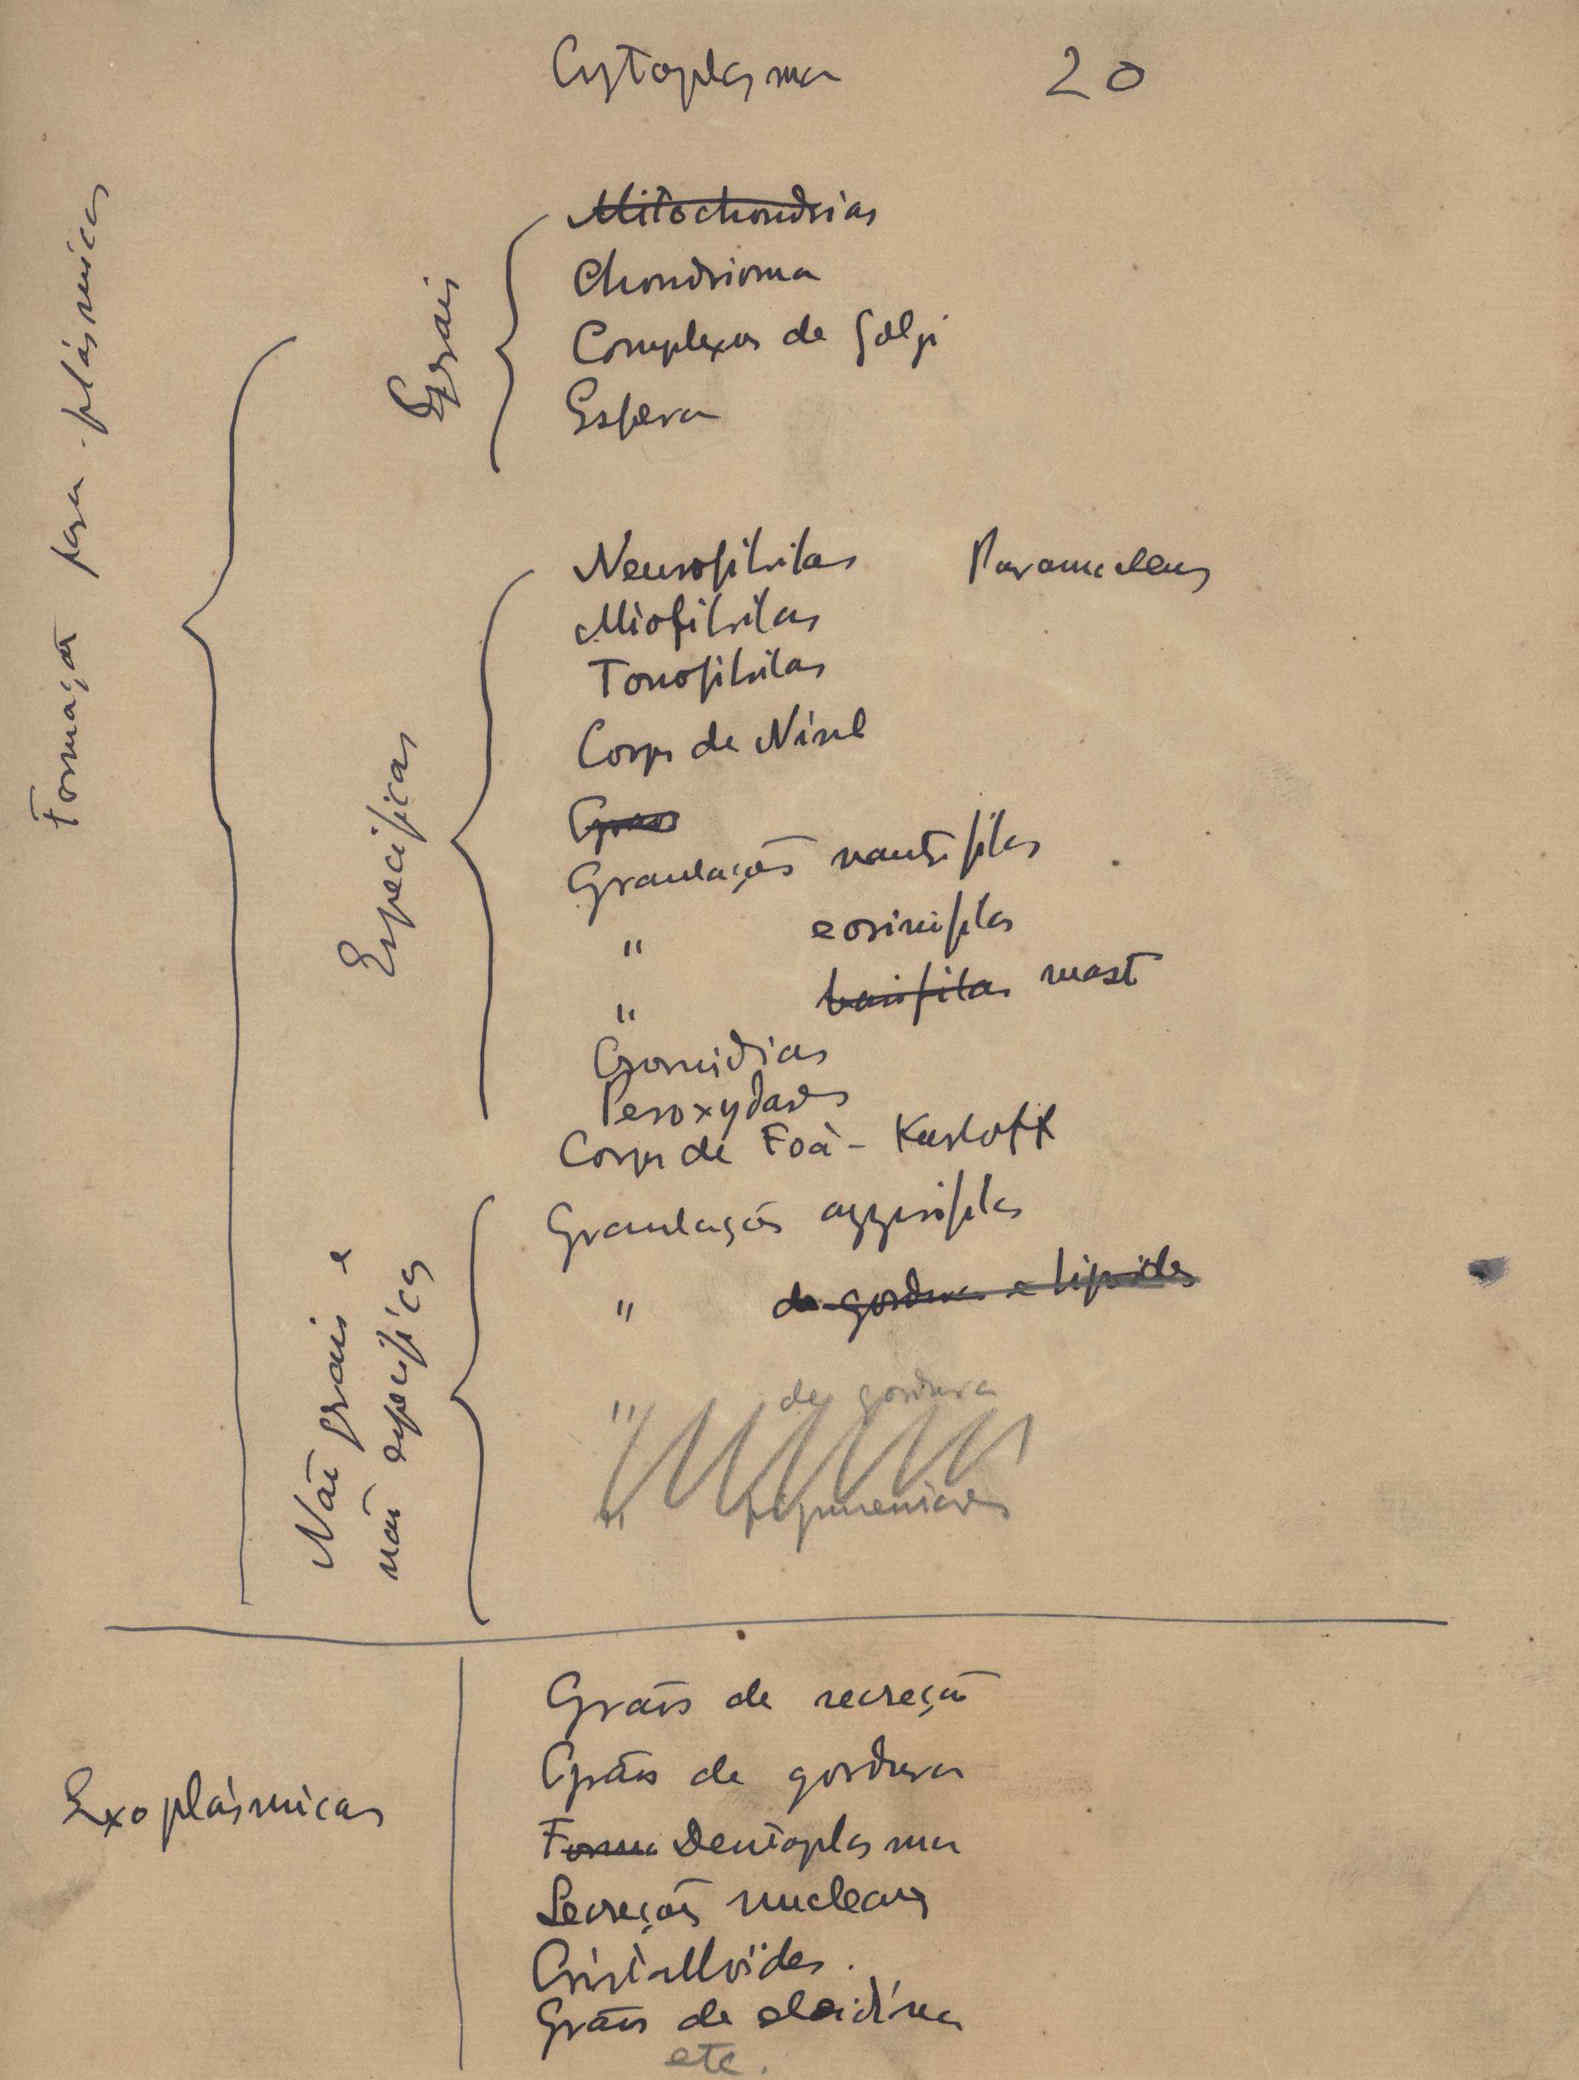 Cytoplasma 20
Formação para-plásmicas
Gerais
Mitochondrias
Chondrioma
Complexos de Golgi
Esfera
Especificas
Neurofibrilas Paranucleus
Miofibrilas
Tonofibrilas
Corps de Nissl
Graos
Granulações neutrofilas
" eosinofilas
" basofilas mast
Cromidias
Peroxydases
Corps de Foà - Kurloff
Não gerais e
não especificas
Granulações azurofilas
" de gordura e lipoides
" de gordura
" pigmentares
Exoplásmicas
Grãos de secreção
Grãos de gordura
Form Deutoplasma
Secreções nucleares
Cristalloïdes.
Grãos de eleidina
etc.